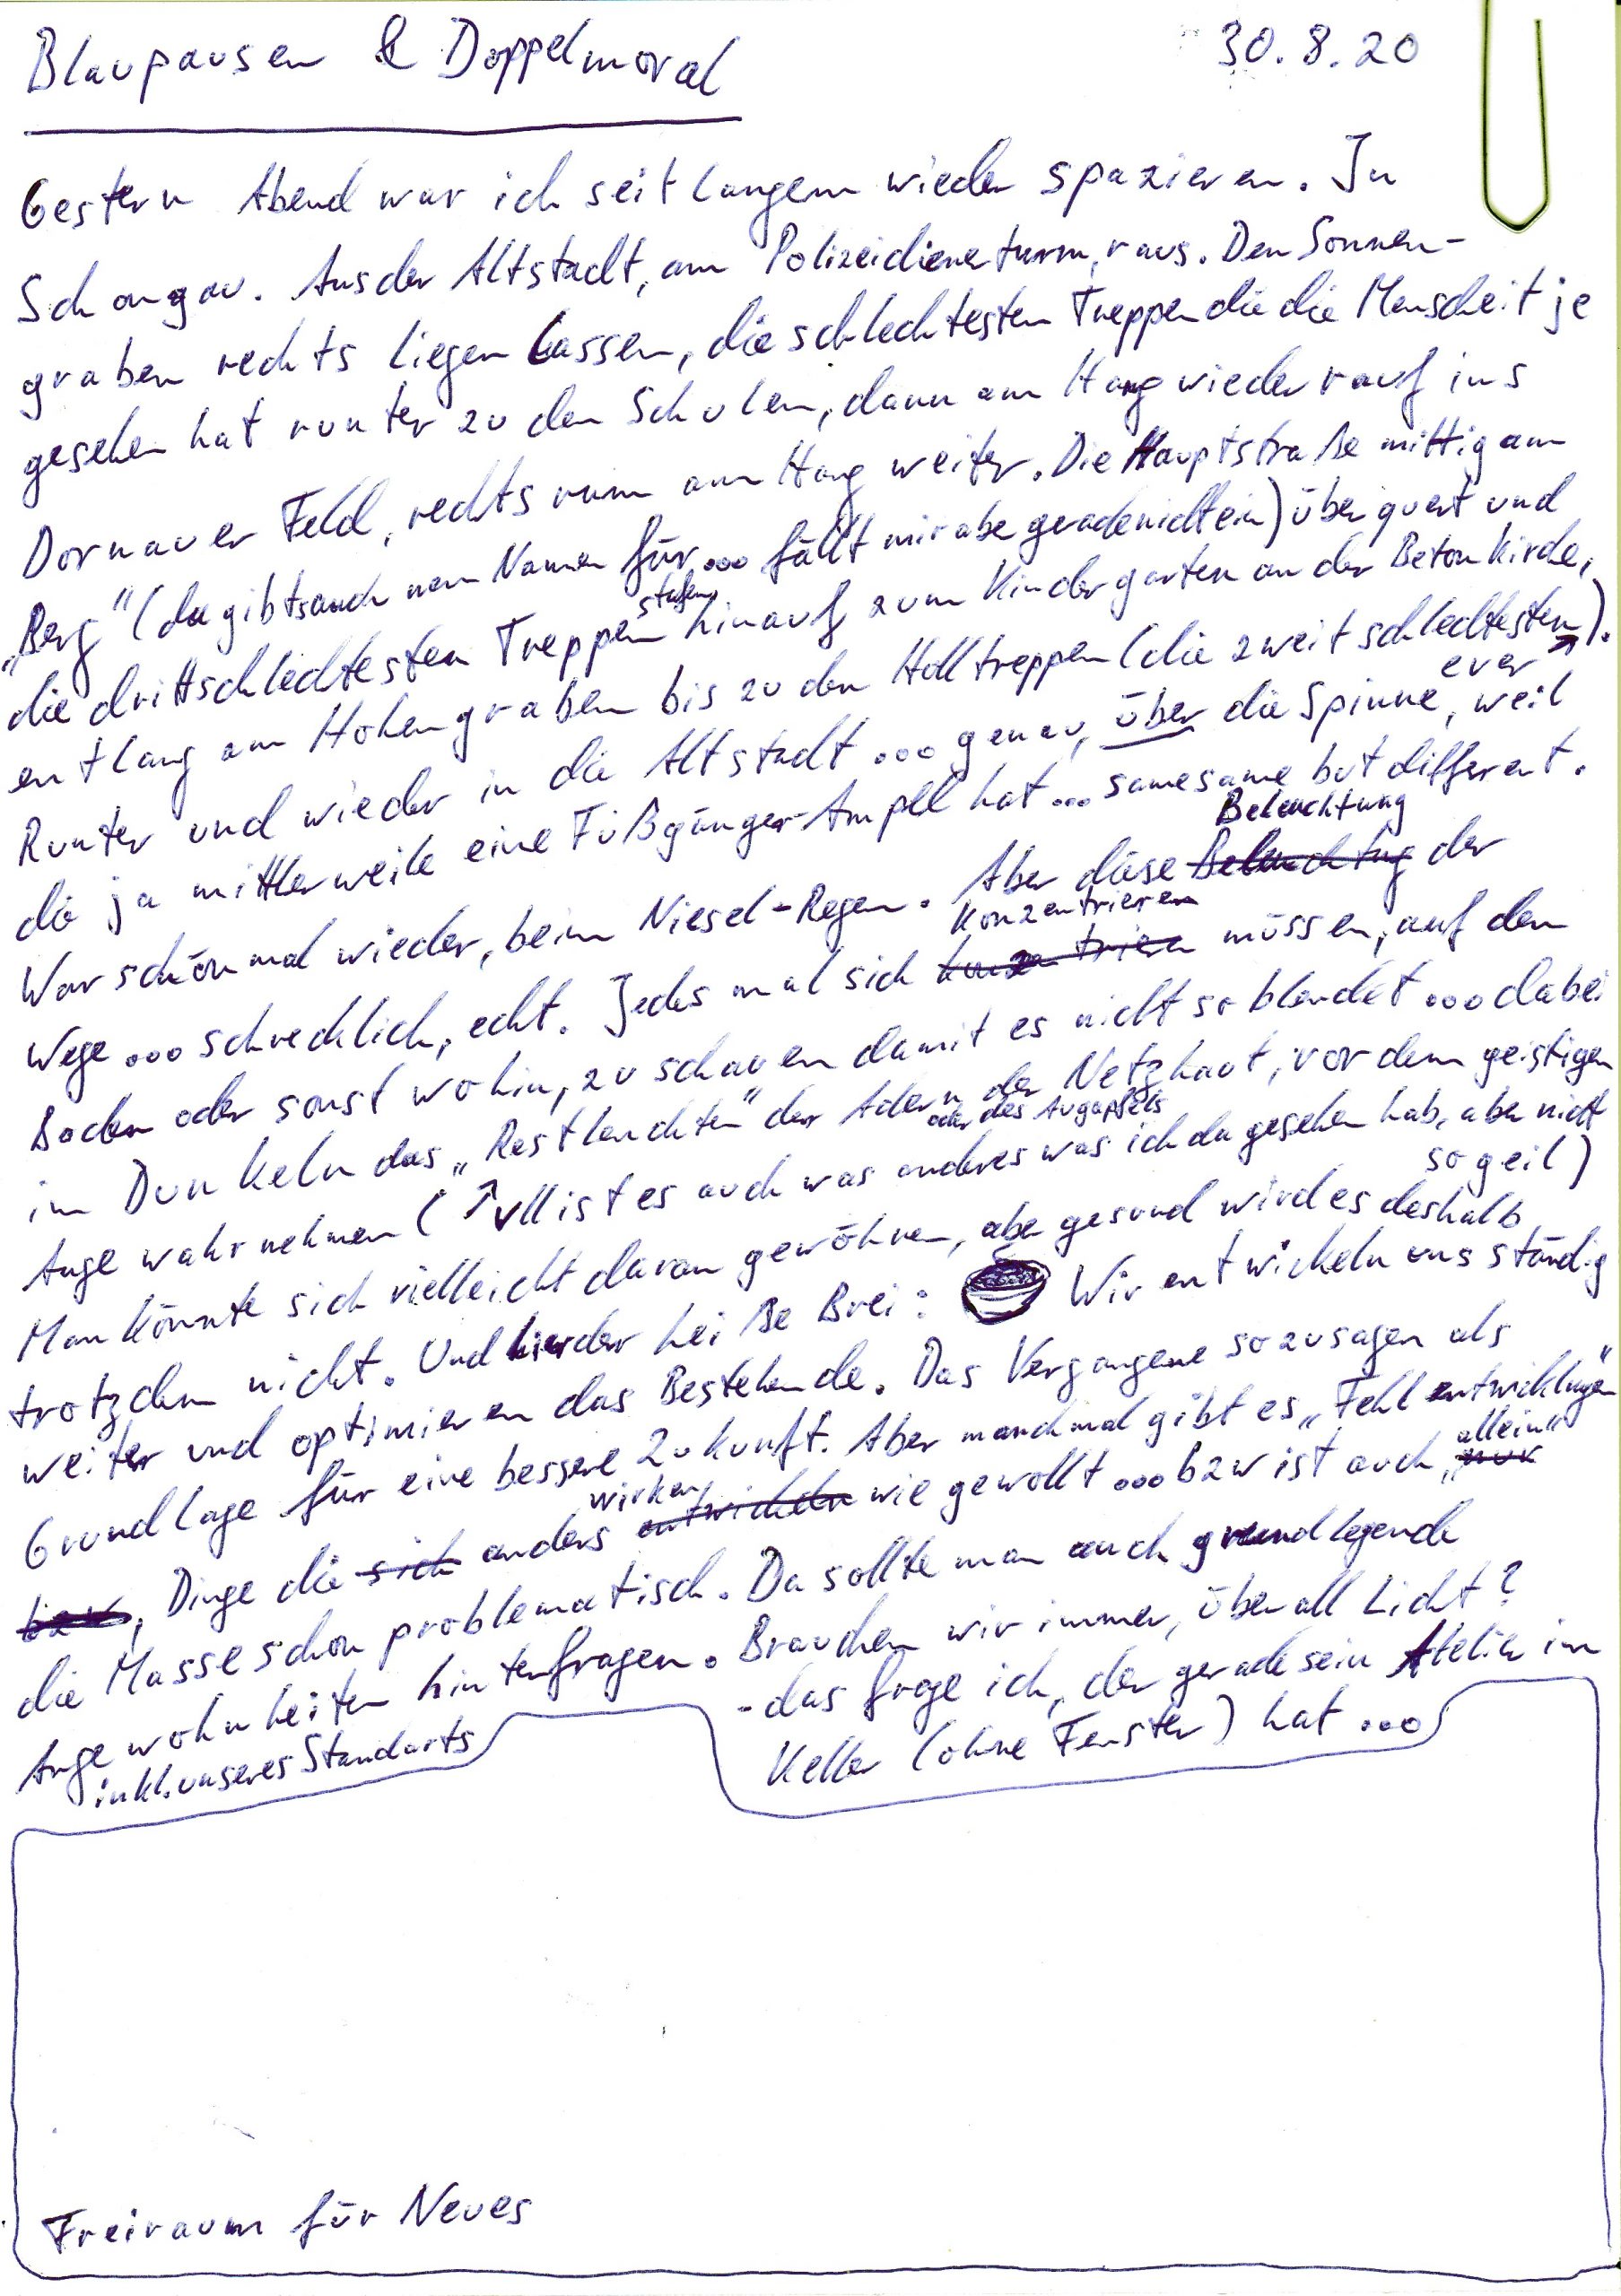 Blaupausen & Doppelmoral 30.8.20
Gestern Abend war ich seit langem wieder spazieren. In
Schongau. Aus der Altstadt, am Polizeidienerturm, raus. Den Sonnen-
graben rechts liegen lassen, die schlechtesten Treppen die die Menscheit je
gesehen hat runter zu den Schulen, dann am Hang wieder rauf ins
Dornauer Feld, rechts rum am Hang weiter. Die Hauptstraße mittig am
„Berg" (da gibts auch nen Namen für... fällt mir abe gerade nicht ein) überquert und
die drittschlechtesten Treppenstufen hinauf zum Kindergarten an der Betonkirche,
entlang am Hohen graben bis zu den Holltreppen (die zweitschlechtesten ever).
Runter und wieder in die Altstadt ... genau, über die Spinne, weil
die ja mittlerweile eine Fußgänger-Ampel hat... same same but different.
War schön mal wieder, beim Niesel-Regen. Aber diese Beleuchtung der
Wege ... schrecklich, echt. Jedes mal sich konzentrieren müssen, auf den
Boden oder sonst wohin, zu schauen damit es nicht so blendet ... dabei
im Dunkeln das „Restleuchten" der Adern der Netzhaut, vor dem geistigen
oder des Augapfels
Auge wahrnehmen (↑ vll ist es auch was anderes was ich da gesehen hab, aber nicht so geil)
Man könnte sich vielleicht daran gewöhnen, aber gesund wird es deshalb
trotzdem nicht. Und hier der heiße Brei: Wir entwickeln uns ständig
weiter und optimieren das Bestehende. Das Vergangene sozusagen als
Grundlage für eine bessere Zukunft. Aber manchmal gibt es „Fehlentwicklungen"
bzw, Dinge die sich anders entwickeln wirken wie gewollt ... bzw ist auch „nur allein"
die Masse schon problematisch. Da sollte man auch grundlegende
Angewohnheiten hinterfragen. Brauchen wir immer, überall Licht?
inkl. unseres Standarts
- das frage ich, der gerade sein Atelier im
Keller (ohne Fenster) hat ...
Freiraum für Neues